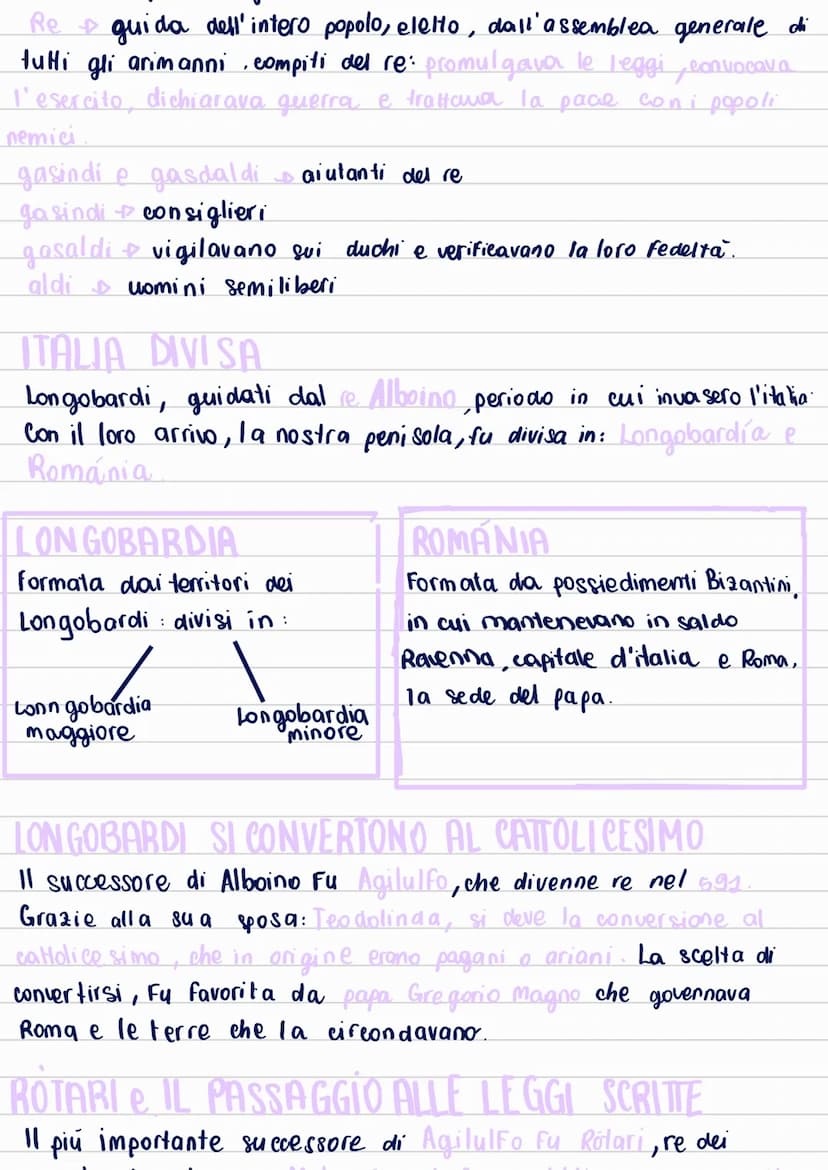 Re → guida dell'intero popolo, eletto, dall'assemblea generale di
tutti gli arimanni. compiti del re: promulgava le leggi, convocava
l'esercito, dichiarava guerra e trattava la pace con i popoli
nemici.
gasindi e gasdaldi → aiutanti del re
gasindi → consiglieri
gasaldi → vigilavano sui duchi e verificavano la loro fedeltà.
aldi → uomini semiliberi
ITALIA DIVISA
Longobardi, guidati dal re Alboino, periodo in cui invasero l'italia.
Con il loro arrivo, la nostra penisola, fu divisa in: Longobardía e
Románia
LONGOBARDIA
Formata dai territori dei
Longobardi: divisi in:
Lonngobardia
maggiore
Longobardia
minore
ROMÁNIA
Formata da possiedimenti Bizantini,
in cui mantenevano in saldo
Ravenna, capitale d'italia e Roma,
la sede del papa.
LONGOBARDI SI CONVERTONO AL CATTOLICESIMO
Il successore di Alboino fu Agilulfo, che divenne re nel 591.
Grazie alla sua sposa: Teodolinda, si deve la conversione al
cattolicesimo, che in origine erano pagani o ariani. La scelta di
convertirsi, fu favorita da papa Gregorio Magno che governava
Roma e le terre che la circondavano.
RÒTARI e IL PASSAGGIO ALLE LEGGI SCRITTE
Il piú importante successore di Agilulfo fu Ròtari, re dei